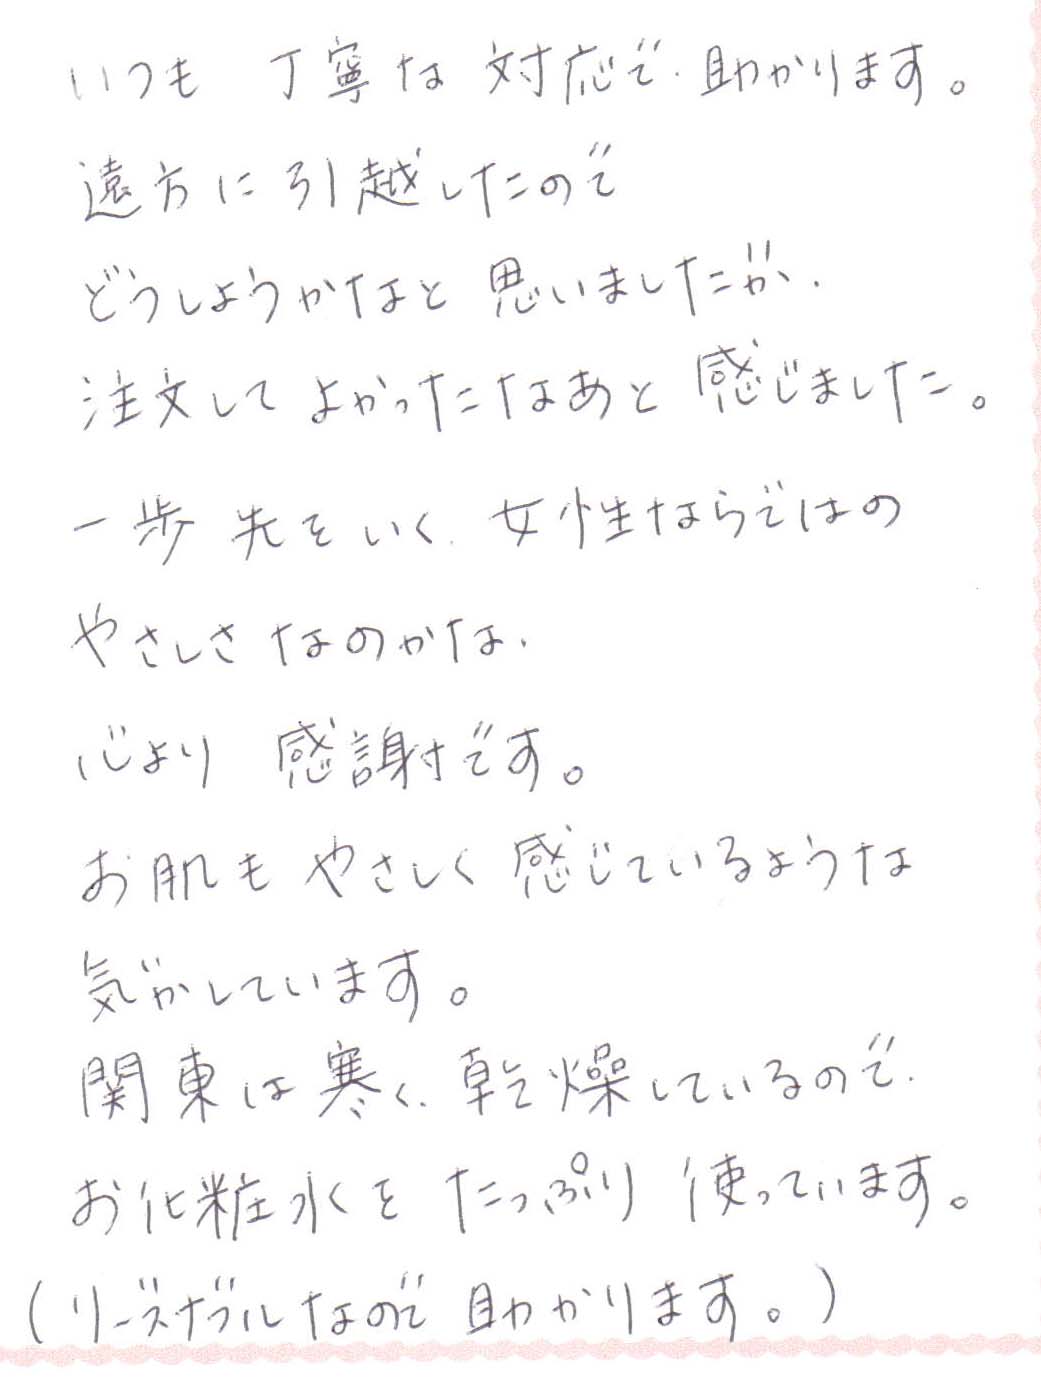 いつも 丁寧な 対応で、助かります。
遠方に引越したので
どうしようかなと 思いましたが、
注文して よかったなあと 感じました。
一歩 先をいく、女性ならではの
やさしさなのかな、
心より 感謝です。
お肌も やさしく 感じているような
気がしています。
関東は寒く、乾燥しているので、
お化粧水を たっぷり 使っています。
(リーズナブルなので 助かります。)